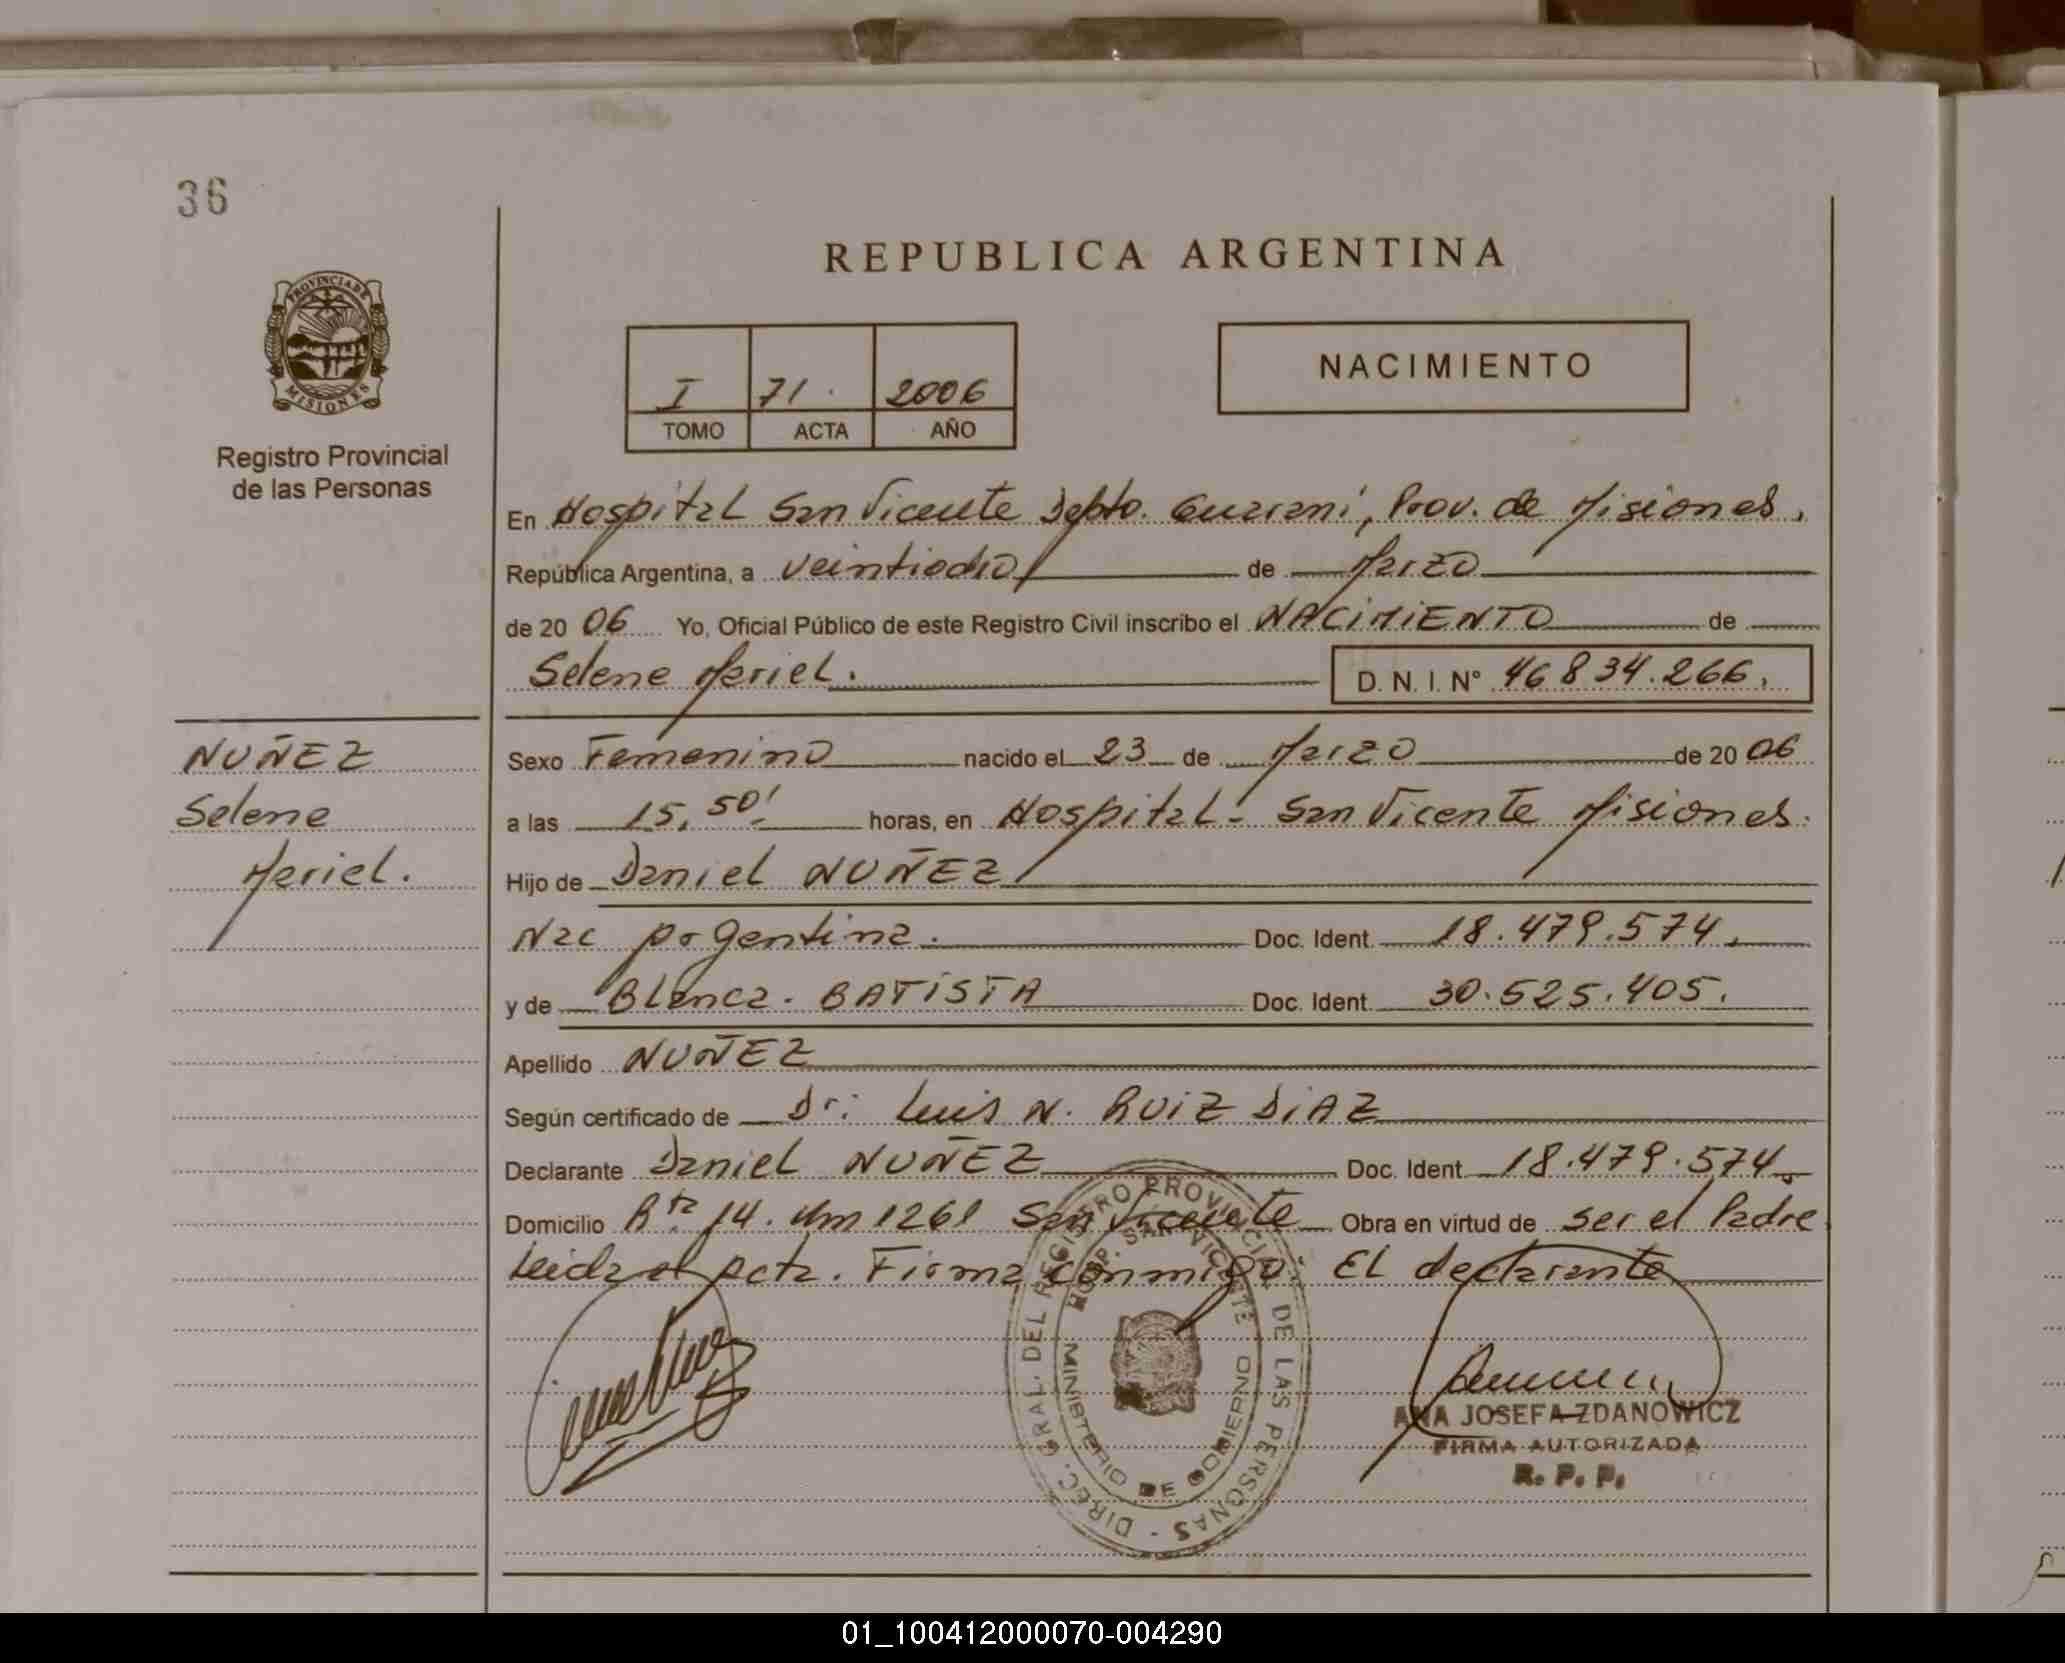 36
REPUBLICA ARGENTINA
PROVINCIA DE
MISIONES
Registro Provincial
de las Personas
I 71. 2006
TOMO ACTA AÑO
NACIMIENTO
En Hospital San Vicente Depto. Guarani, Prov. de Misiones.
República Argentina, a veintiocho de Marzo
de 20 06 Yo, Oficial Público de este Registro Civil inscribo el NACIMIENTO de
Selene Mariel. D. N. I. N° 46834.266.
NUÑEZ
Selene
Mariel.
Sexo Femenino nacido el 23 de Marzo de 20 06
a las 15,50' horas, en Hospital - San Vicente Misiones.
Hijo de Daniel NUÑEZ
Nac Argentina. Doc. Ident. 18.479.574.
y de Blanca. BATISTA Doc. Ident. 30.525.405.
Apellido NUÑEZ
Según certificado de Dr: Luis N. RUIZ DIAZ
Declarante Daniel NUÑEZ Doc. Ident. 18.479.574
Domicilio Rta 14. Km 1261 San Vicente Obra en virtud de ser el Padre
Leida el Acta. Firma conmigo: El declarante
DIREC. GRAL. DEL REGISTRO PROVINCIAL DE LAS PERSONAS -
HOSP. SAN VICENTE
MINISTERIO DE GOBIERNO
ANA JOSEFA ZDANOWICZ
FIRMA AUTORIZADA
R. P. P.
01_100412000070-004290